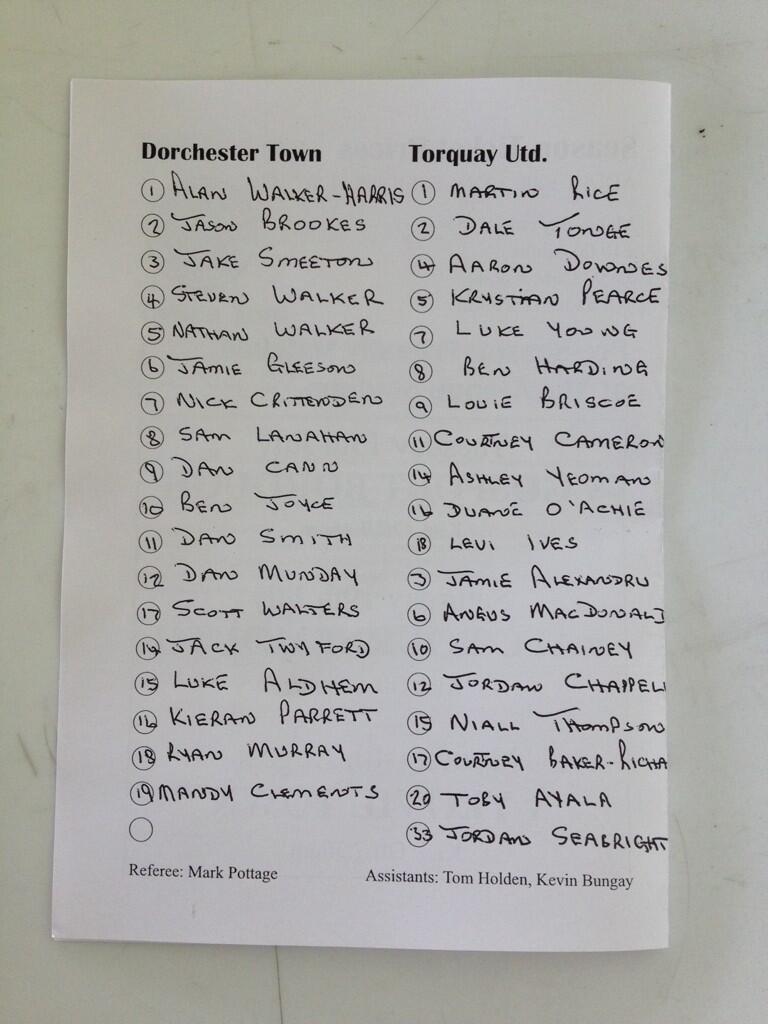 Dorchester Town
1 ALAN WALKER-HARRIS
2 JASON BROOKES
3 JAKE SMEETON
4 STEVEN WALKER
5 NATHAN WALKER
6 JAMIE GLEESON
7 NICK CRITTENDEN
8 SAM LANAHAN
9 DAN CANN
10 BEN JOYCE
11 DAN SMITH
12 DAN MUNDAY
17 SCOTT WALTERS
14 JACK TWYFORD
15 LUKE ALDHEM
16 KIERAN PARRETT
18 RYAN MURRAY
19 MANDY CLEMENTS
Torquay Utd.
1 MARTIN RICE
2 DALE TONGE
4 AARON DOWNES
5 KRYSTIAN PEARCE
7 LUKE YOUNG
8 BEN HARDING
9 LOUIE BRISCOE
11 COURTNEY CAMERON
14 ASHLEY YEOMAN
16 DUANE O'ACHIE
18 LEVI IVES
3 JAMIE ALEXANDRU
6 ANGUS MACDONALD
10 SAM CHAINEY
12 JORDAN CHAPPELL
15 NIALL THOMPSON
17 COURTNEY BAKER-RICHA
20 TOBY AYALA
33 JORDAN SEABRIGHT
Referee: Mark Pottage
Assistants: Tom Holden, Kevin Bungay